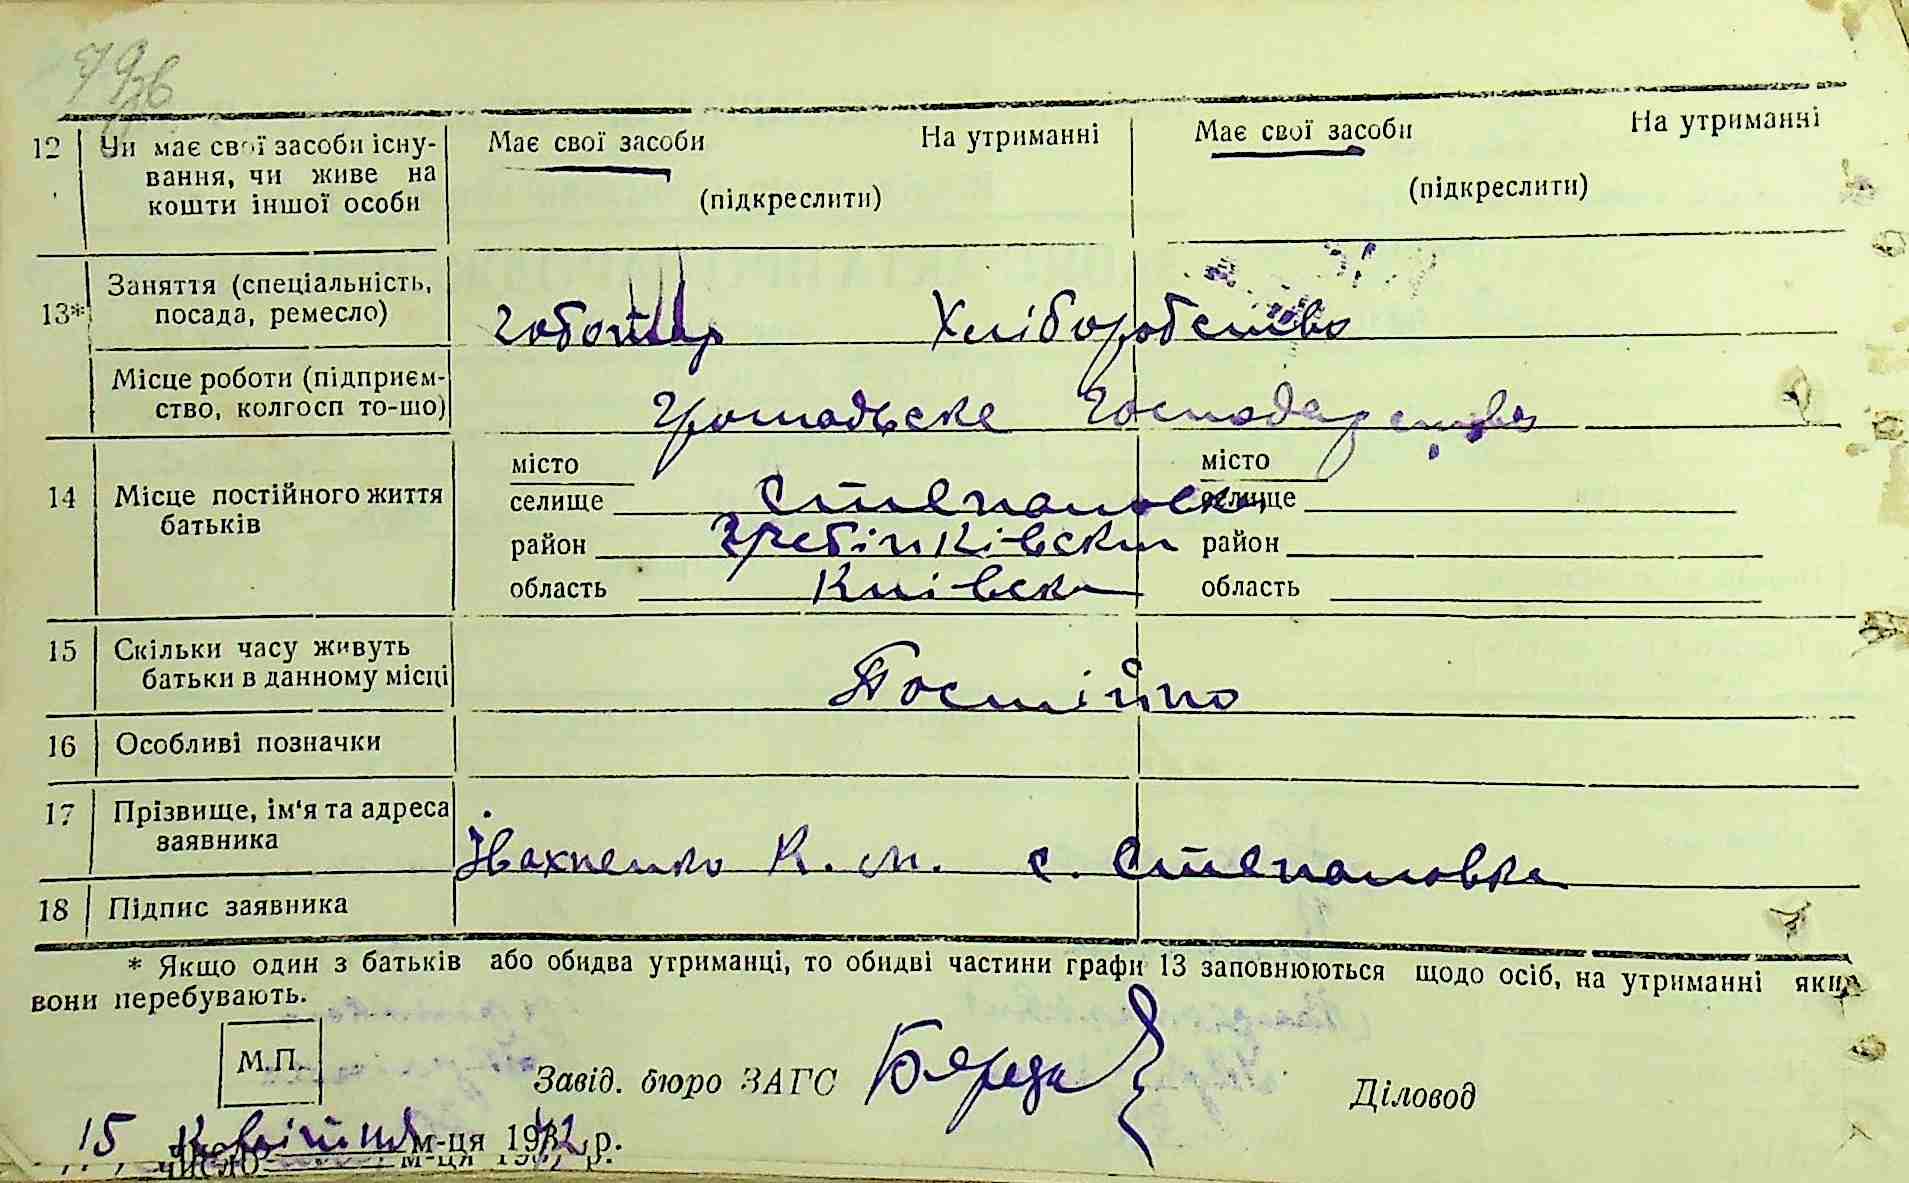 12 Чи має свої засоби існу- Має свої засоби На утриманні Має свої засоби На утриманні
вання, чи живе на (підкреслити) (підкреслити)
кошти іншої особи
13* Заняття (спеціальність,
посада, ремесло) чоботар Хліборобство
Місце роботи (підприєм-
ство, колгосп то-що) Громадське Господарство
14 Місце постійного життя батьків
місто місто
селище Степановка селище
район Гребінківськи район
область Киівска область
15 Скільки часу живуть
батьки в данному місці Постійно
16 Особливі позначки
17 Прізвище, ім'я та адреса
заявника Івахненко К. М. с. Степановка
18 Підпис заявника
* Якщо один з батьків або обидва утриманці, то обидві частини графи 13 заповнюються щодо осіб, на утриманні яких
вони перебувають.
М.П.
Завід. бюро ЗАГС Діловод
15 Квітня м-ця 1942 р.
число м-ця 19 р.